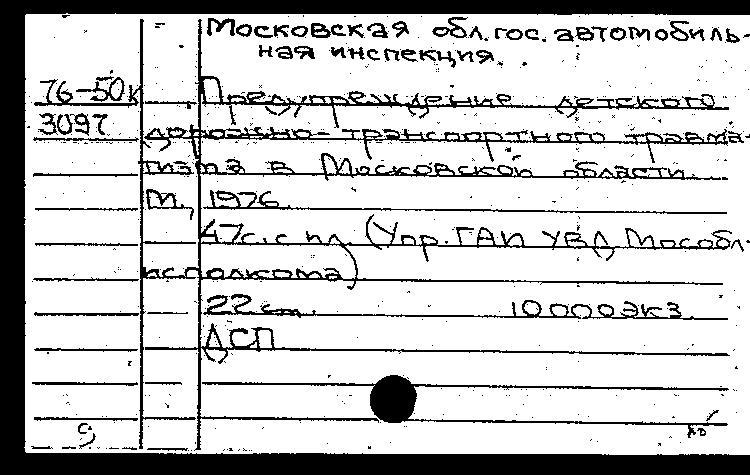 Московская обл. гос. автомобиль-
ная инспекция.
76-50к Предупреждение детского
3097 дорожно-транспортного травма-
тизма в Московской области.
М., 1976.
47 с. с ил. (Упр. ГАИ УВД Мособл-
исполкома)
22 см. 10000 экз.
ДСП
9